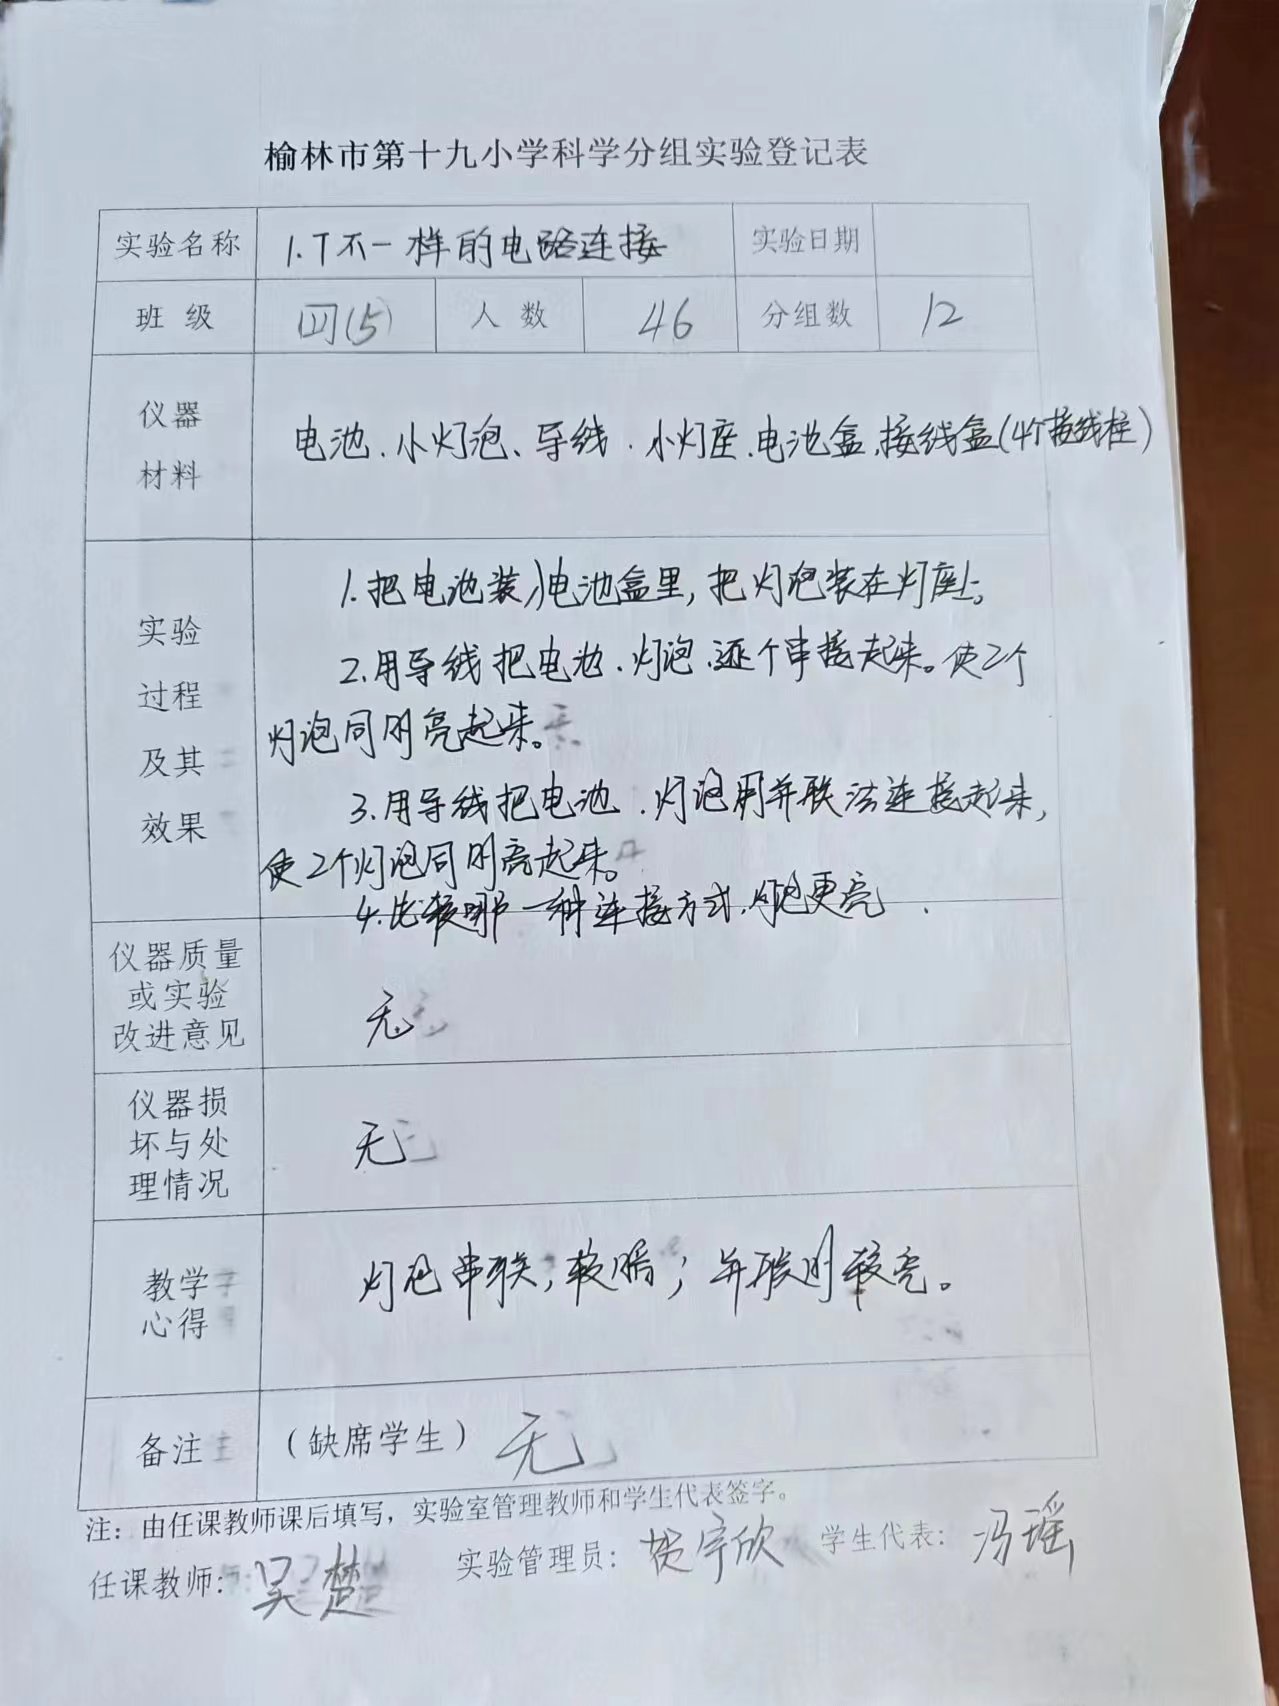 榆林市第十九小学科学分组实验登记表
实验名称 1.T不一样的电路连接 实验日期
班 级 四(5) 人 数 46 分组数 12
仪器
材料
电池、小灯泡、导线、小灯座、电池盒、接线盒(4个接线柱)
实验
过程
及其
效果
1.把电池装入电池盒里,把灯泡装在灯座上。
2.用导线把电池、灯泡、逐个串接起来。使2个
灯泡同时亮起来。
3.用导线把电池、灯泡用并联法连接起来,
使2个灯泡同时亮起来。
4.比较哪一种连接方式,灯泡更亮.
仪器质量
或实验
改进意见
无
仪器损
坏与处
理情况
无
教学
心得
灯泡串联,较暗;并联则较亮。
备注 (缺席学生) 无
注:由任课教师课后填写,实验室管理教师和学生代表签字。
任课教师:吴楚 实验管理员:贺宇欣 学生代表:冯瑶